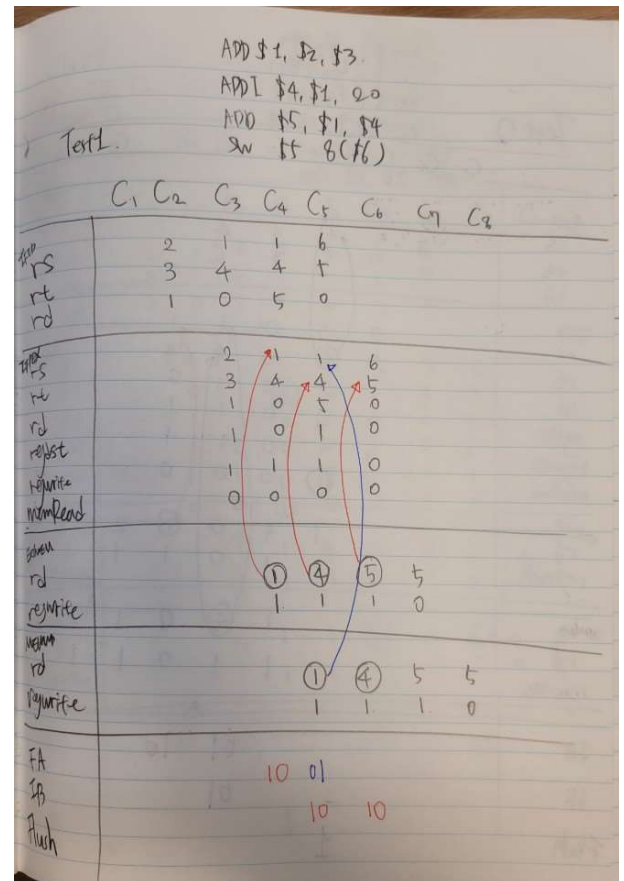 ADD $1, $2, $3.
ADDI $4, $1, 20
ADD $5, $1, $4
Test1. SW $5 8($6)
C1 C2 C3 C4 C5 C6 C7 C8
rs 2 1 1 6
rt 3 4 4 5
rd 1 0 5 0
rs 2 1 1 6
rt 3 4 4 5
rd 1 0 5 0
regdst 1 0 1 0
regwrite 1 1 1 0
memRead 0 0 0 0
rd 1 4 5 5
regwrite 1 1 1 0
rd 1 4 5 5
regwrite 1 1 1 0
FA 10 01
10 10
Flush